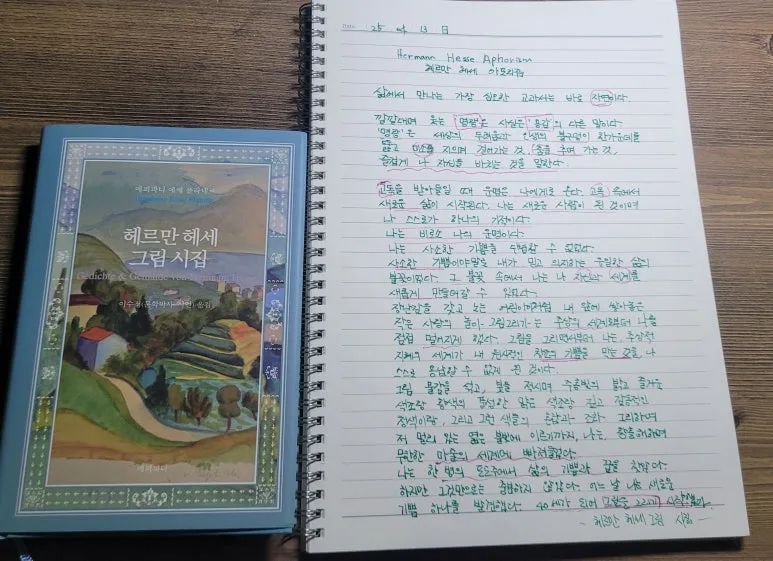 에피파니 에세 플라네르
헤르만 헤세
그림 시집
Gedichte & Gemälde von Hermann Hesse
이수정(문학박사·시인) 옮김
에피파니
Date. 25 04 13 日
Hermann Hesse Aphorism
헤르만 헤세 아포리즘
삶에서 만나는 가장 심오한 교과서는 바로 자연이다.
깔깔대며 웃는 '명랑'은 사실은 '용감'의 다른 말이다.
'명랑'은 세상의 두려움과 인생의 불구덩이 한가운데를
뚫고 미소를 지으며 걸어가는 것, 춤을 추며 가는 것,
즐겁게 나 자신을 바치는 것을 말한다.
고독을 받아들일 때 운명은 나에게로 온다. 고독 속에서
새로운 삶이 시작된다. 나는 새로운 사람이 된 것이며
나 스스로가 하나의 기적이다.
나는 비로소 나의 운명이다.
나는 사소한 기쁨을 수행할 수 있었다.
사소한 기쁨이야말로 내가 믿고 의지하는 유일한 삶의
불꽃이었다. 그 불꽃 속에서 나는 나 자신과 세계를
새롭게 만들어갈 수 있었다.
장난감을 갖고 노는 어린아이처럼 내 앞에 쌓아놓은
작은 사랑의 놀이 그림그리기는 추상의 세계로부터 나를
점점 멀어지게 했다. 그림을 그리면서부터 나는 추상적
지폐의 세계가 내 원시적인 창조의 기쁨을 막는 것을 나
스스로 용납할 수 없게 된 것이다.
그림 물감을 섞고, 붓을 적시며 수중빛의 밝고 즐거운
석조랑 황색의 풍성한 맑은 석조랑 깊고 감동적인
청색이랑, 그리고 그런 색들의 혼합과 조화 그리하며
저 멀리 있는 엷은 불빛에 이르기까지, 나는, 황홀해하며
무한한 마술의 세계에 빠져들었다.
나는 한 병의 포도주에서 삶의 기쁨과 꿈을 찾았다.
하지만 그것만으로는 충분하지 않았다. 어느 날 나는 새로운
기쁨 하나를 발견했다. 40세가 되어 그림을 그리기 시작했다.
- 헤르만 헤세 그림 시집 -